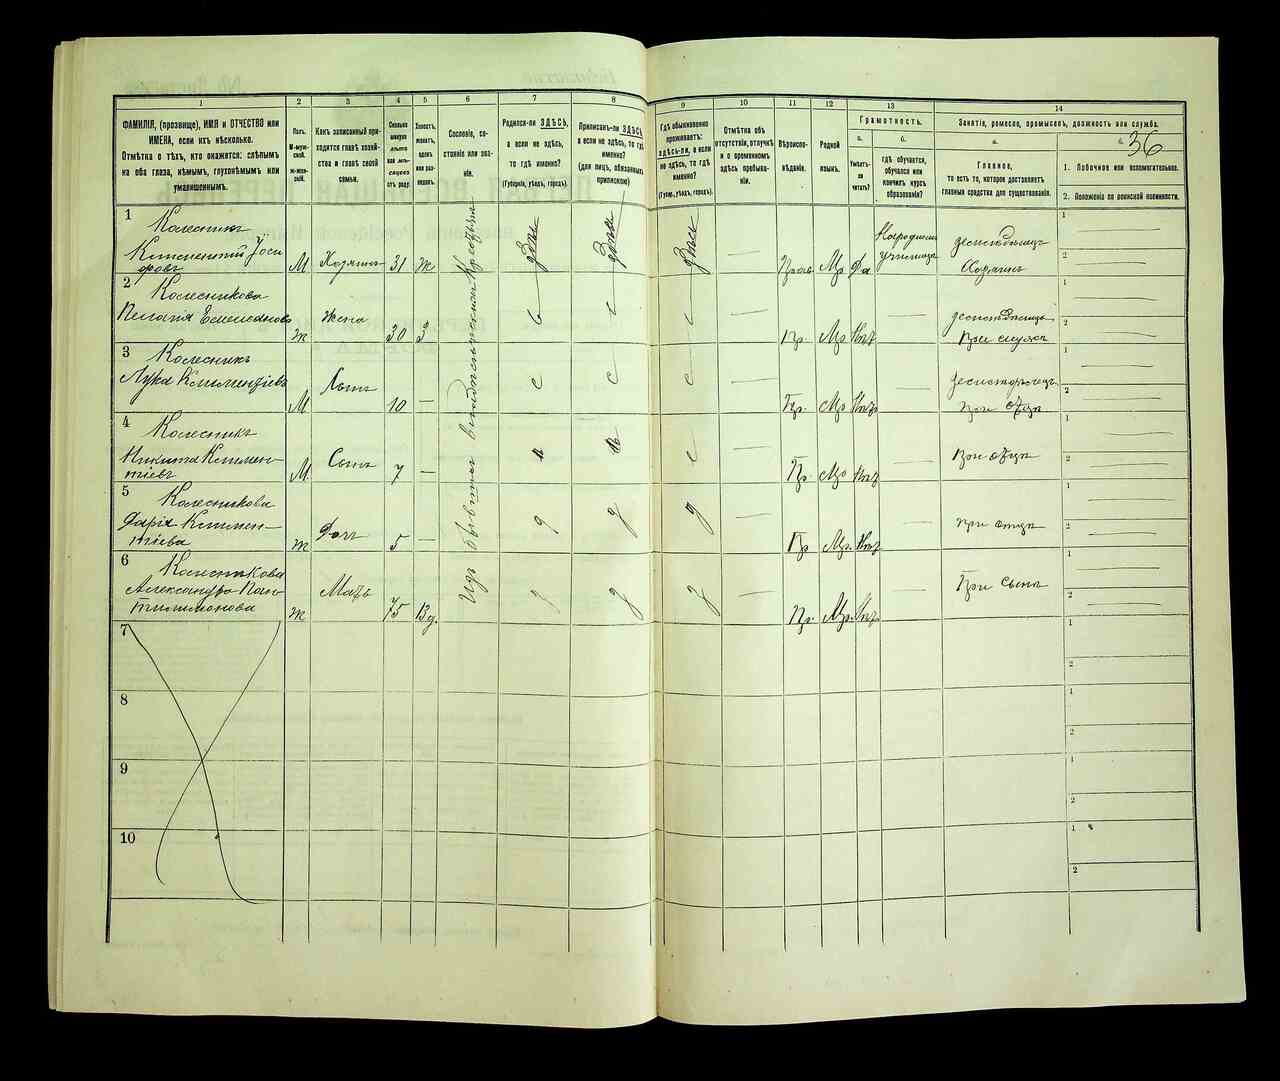 36
1
2
3
4
5
6
7
8
9
10
11
12
13
14
ФАМИЛІЯ, (прозвище), ИМЯ и ОТЧЕСТВО или
ИМЕНА, если ихъ нѣсколько.
Отмѣтка о тѣхъ, кто окажется: слѣпымъ
на оба глаза, нѣмымъ, глухонѣмымъ или
умалишеннымъ.
Полъ.
М-мужской.
Ж-женскій.
Какъ записанный приходится главѣ хозяйства и главѣ своей
семьи.
Сколько
минуло
лѣтъ
или мѣсяцевъ
отъ роду.
Холостъ,
женатъ,
вдовъ
или разведенъ.
Сословіе, состояніе или званіе.
Родился-ли ЗДѢСЬ,
а если не здѣсь,
то гдѣ именно?
(Губернія, уѣздъ, городъ).
Приписанъ-ли ЗДѢСЬ,
а если не здѣсь, то гдѣ
именно?
(для лицъ, обязанныхъ
припискою)
Гдѣ обыкновенно
проживаетъ:
здѣсь-ли, а если
не здѣсь, то гдѣ
именно?
(Губер., уѣздъ, городъ).
Отмѣтка объ
отсутствіи, отлучкѣ
и о временномъ
здѣсь пребываніи.
Вѣроисповѣданіе.
Родной
языкъ.
Грамотность.
а.
Умѣетъ-ли
читать?
б.
гдѣ обучается,
обучался или
кончилъ курсъ
образованія?
Занятія, ремесло, промыселъ, должность или служба.
а.
Главное,
то есть то, которое доставляетъ
главныя средства для существованія.
1. Побочное или вспомогательное.
2. Положеніе по воинской повинности.
1
Колесникъ
Климентій
М Хозяинъ 31 Ж здѣсь здѣсь здѣсь — Прав. Мр Да
училище
Хозяинъ
2
Колесникова
Ж Жена 30 З — Пр. Мр Нѣтъ
3
Колесникъ
Лука Климентіевъ
М Сынъ 10 — — Пр. Мр Нѣтъ
При отцѣ
4
Колесникъ
Никита Климен-
тіевъ
М. Сынъ 7 — — Пр Мр Нѣтъ — При отцѣ
5
Колесникова
Дарія Климен-
тіева
Ж Дочь 5 — — Пр Мр. Нѣтъ — При отцѣ
6
Колесникова
Александра Пан-
Ж Мать 75 Вд. — Пр. Мр. Нѣтъ При сынѣ
7
8
9
10